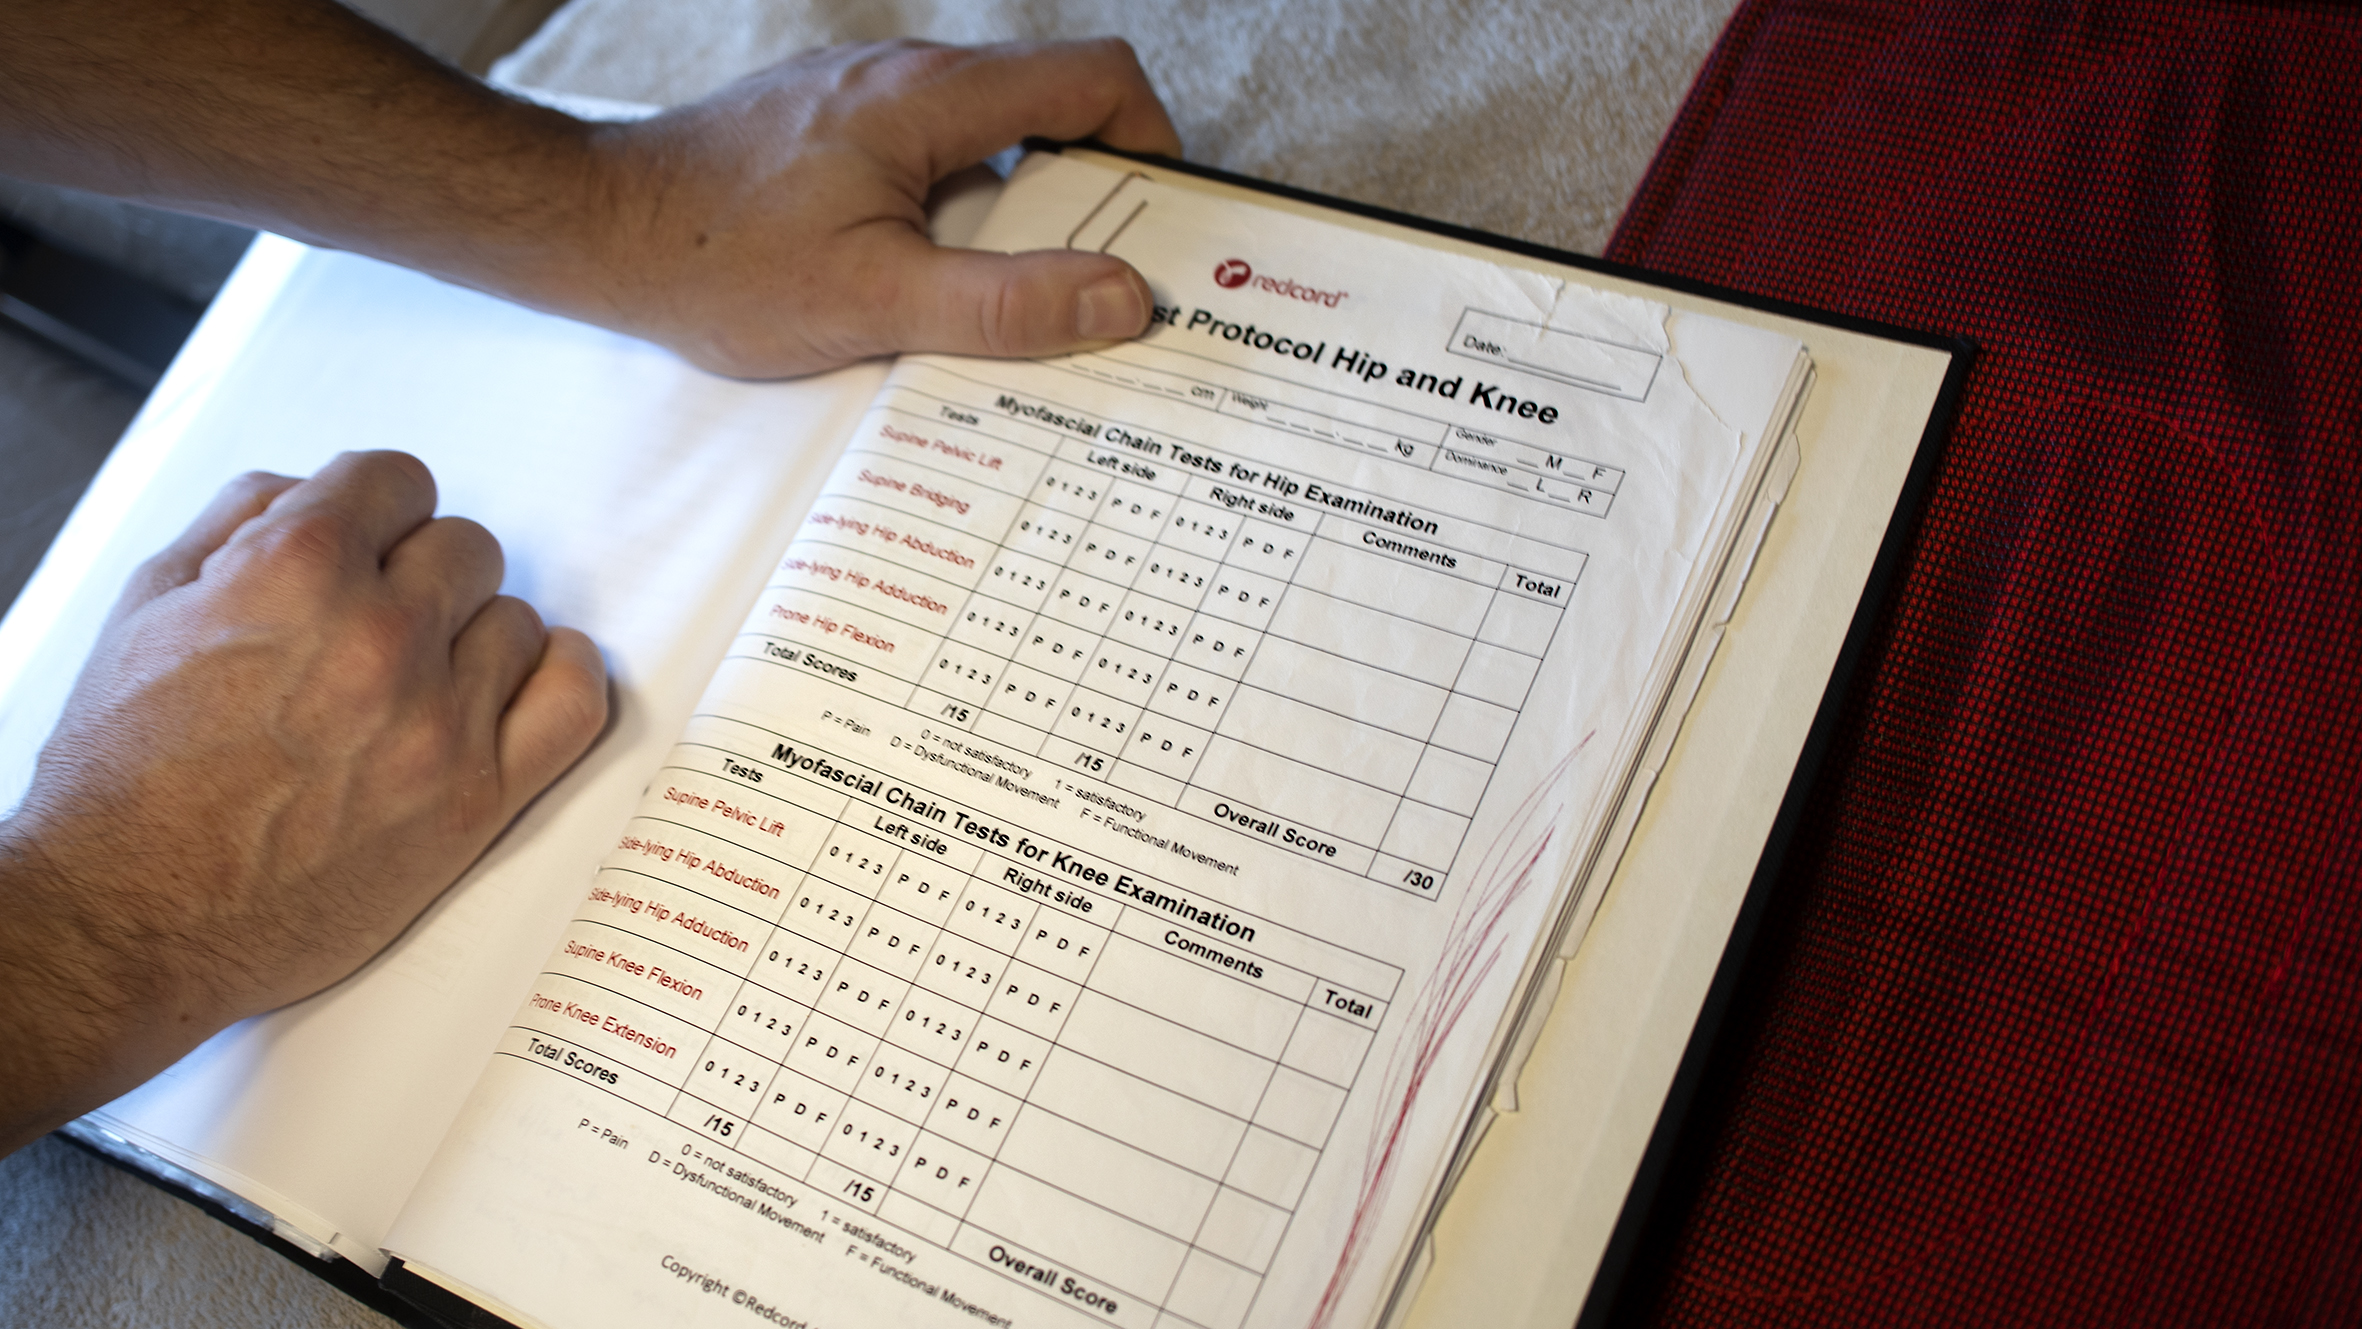 redcord
Date:
Protocol Hip and Knee
cm Weight kg Gender M F
Dominance L R
Myofascial Chain Tests for Hip Examination
Tests Left side Right side Comments Total
Supine Pelvic Lift 0 1 2 3 P D F 0 1 2 3 P D F
Supine Bridging 0 1 2 3 P D F 0 1 2 3 P D F
Side-lying Hip Abduction 0 1 2 3 P D F 0 1 2 3 P D F
Side-lying Hip Adduction 0 1 2 3 P D F 0 1 2 3 P D F
Prone Hip Flexion 0 1 2 3 P D F 0 1 2 3 P D F
Total Scores /15 /15 Overall Score /30
0 = not satisfactory 1 = satisfactory
P = Pain D = Dysfunctional Movement F = Functional Movement
Myofascial Chain Tests for Knee Examination
Tests Left side Right side Comments Total
Supine Pelvic Lift 0 1 2 3 P D F 0 1 2 3 P D F
Side-lying Hip Abduction 0 1 2 3 P D F 0 1 2 3 P D F
Side-lying Hip Adduction 0 1 2 3 P D F 0 1 2 3 P D F
Supine Knee Flexion 0 1 2 3 P D F 0 1 2 3 P D F
Prone Knee Extension 0 1 2 3 P D F 0 1 2 3 P D F
Total Scores /15 /15 Overall Score
0 = not satisfactory 1 = satisfactory
P = Pain D = Dysfunctional Movement F = Functional Movement
Copyright ©Redcord